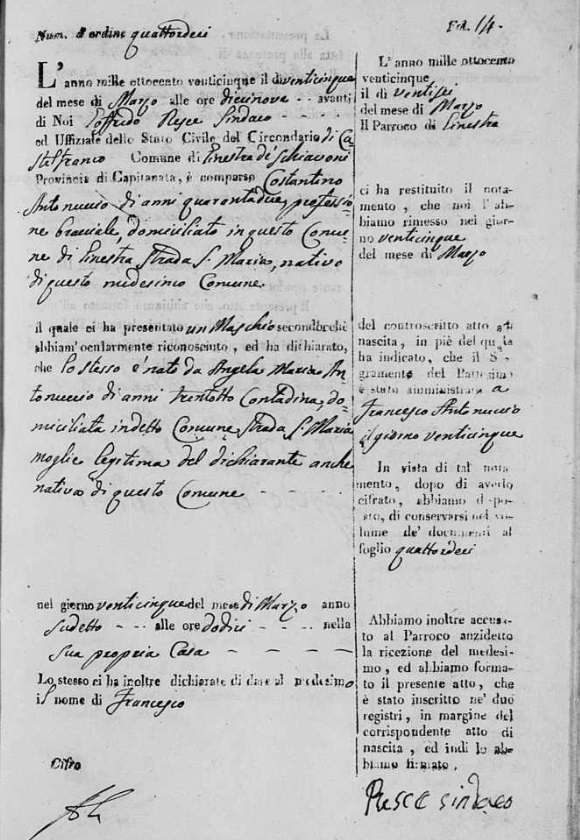 Num. d'ordine quattordeci
Fol. 14.
L'anno mille ottocento venticinque il dì venticinque
del mese di Marzo alle ore diecinove - - avanti
di Noi Loffredo Pesce Sindaco
ed Uffiziale dello Stato Civile del Circondario di Ca=
stelfranco Comune di Ginestra de' Schiavoni
Provincia di Capitanata, è comparso Costantino
Antonuccio di anni quarantadue, professio=
ne bracciale, domiciliato in questo Comu=
ne di Ginestra Strada S. Maria, nativo
di questo medesimo Comune.
il quale ci ha presentato un Maschio secondocchè
abbiam' ocularmente riconosciuto, ed ha dichiarato,
che lo stesso è nato da Angela Maria An=
tonuccio di anni trentotto Contadina, do=
miciliata in detto Comune Strada S. Maria
moglie legitima del dichiarante anche
nativa di questo Comune
nel giorno venticinque del mese di Marzo anno
sudetto - - alle ore dodici - - - - nella
sua propria Casa - - - - -
Lo stesso ci ha inoltre dichiarato di dare al medesimo
il nome di Francesco
Cifro
L'anno mille ottocento
venticinque
il di ventisei
del mese di Marzo
Il Parroco di Ginestra
ci ha restituito il nota-
mento, che noi l'ab-
biamo rimesso nel gior-
no venticinque
del mese di Marzo
del controscritto atto di
nascita, in piè del quale
ha indicato, che il Sa-
gramento del Battesimo
è stato amministrato a
Francesco Antonuccio
il giorno venticinque
In vista di tal nota-
mento, dopo di averlo
cifrato, abbiamo dispo-
sto, di conservarsi nel vo-
lume de' documenti al
foglio quattordeci
Abbiamo inoltre accusa-
to al Parroco anzidetto
la ricezione del medesi-
mo, ed abbiamo forma-
to il presente atto, che
è stato inscritto ne' due
registri, in margine del
corrispondente atto di
nascita, ed indi lo ab-
biamo firmato.
Pesce sindaco